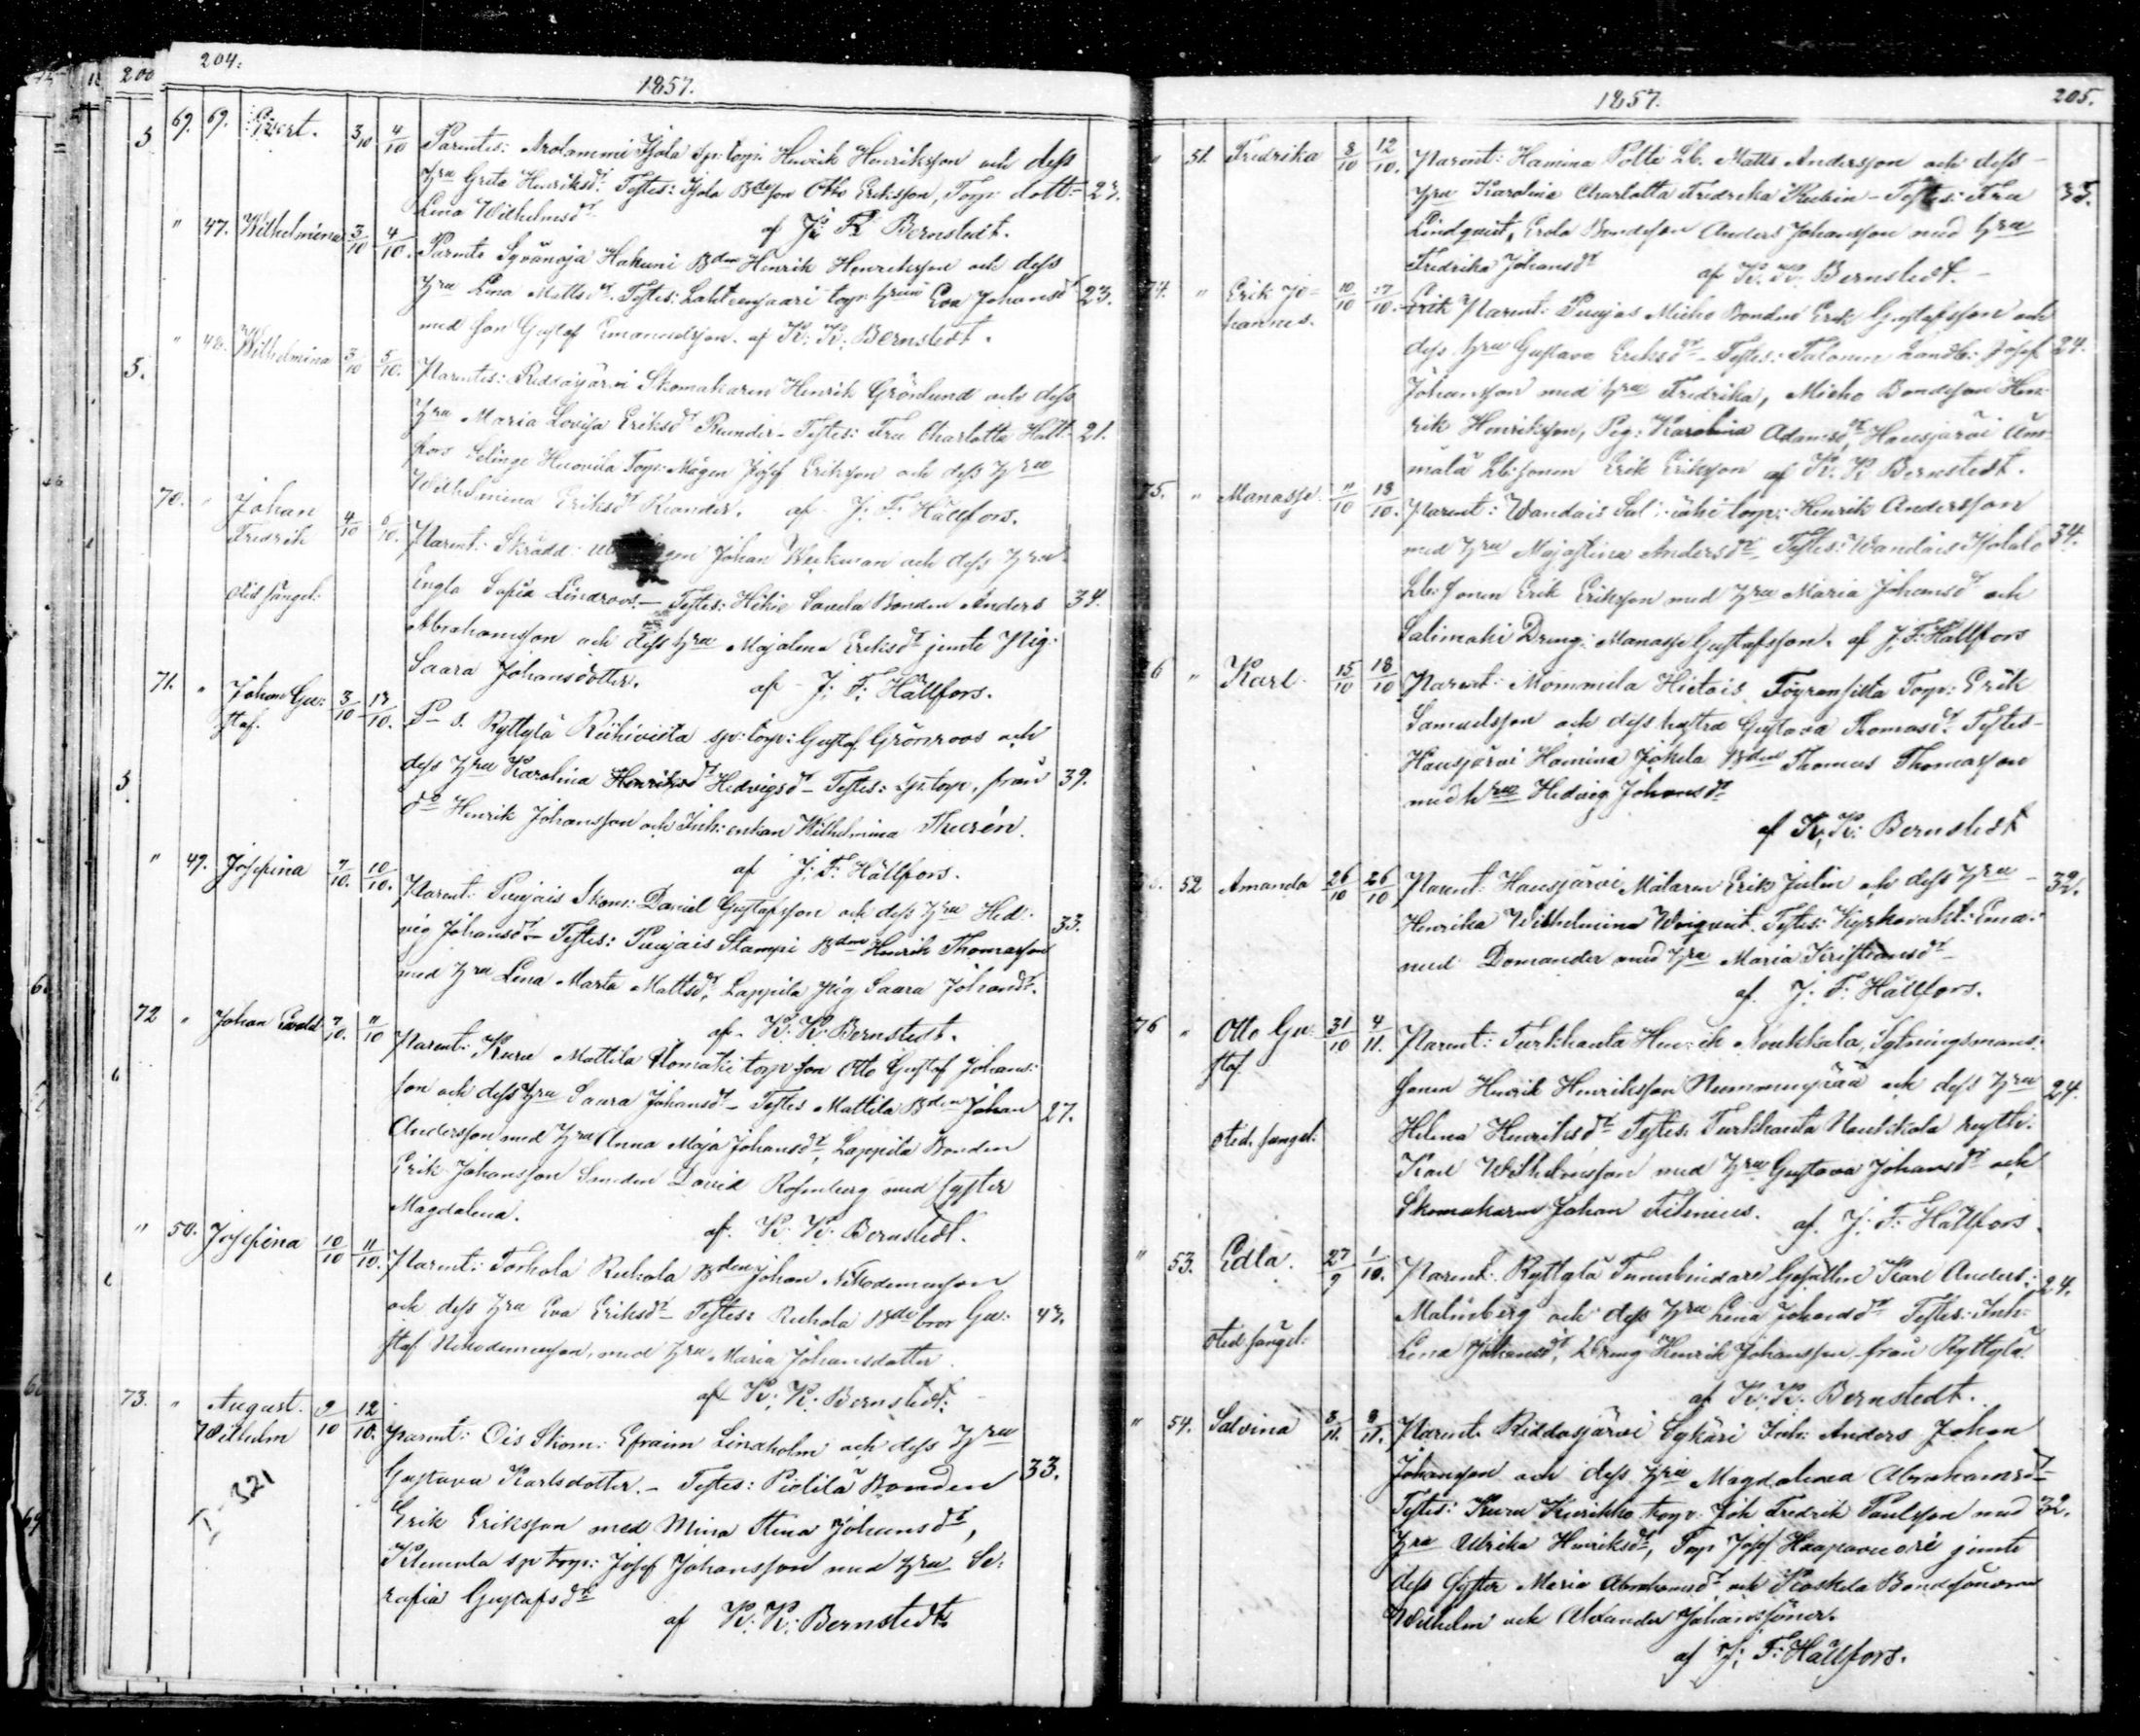 200
204.
1857.
69. 69. Evert. 3/10 4/10 Parentes: Arolammi Isola Sp: torp: Henrik Henriksson och dess
hru Greta Henriksdr. Testes: Isola Bdeson Otto Eriksson, Torp: dott- 27.
Lina Wilhelmsdr
af K: K: Bernstedt.
" 47. Wilhelmina 3/10 4/10. Parents Syvänoja Hakuni Bden Henrik Henriksson och dess
hru Lena Mattsdr. Testes: Lahtensaari torp: hrun Eva Johansdr 23.
med son Gustaf Emanuelsson. af K: K: Bernstedt.
" 48. Wilhelmina 3/10 5/10. Parentes: Riddasjärvi Skomakaren Henrik Grönlund och dess
hru Maria Lovisa Eriksdr Reander - Testes: Fru Charlotta Häll- 21.
fors Selinge Huovila Torp: Mågen Josef Eriksson och dess hru
Wilhelmina Eriksdr Reander. af J: F: Hällfors.
70. " Johan
Fredrik 4/10 5/10. Parent: Skrädd: Johan Weckman och dess hru
Oläs. sångel: Engla Sofia Lindroos. - Testes: Hikiä Sanela Bonden Anders 34.
Abrahamsson och dess hru Majalena Eriksdr jemte Pig:
Saara Johansdotter. af J: F: Hällfors.
71. " Johan Gu:
staf. 3/10 13/10. P- s. Ryttylä Riihiviita sp: torp: Gustaf Grönroos och
dess hru Karolina Henriksdr Hedvigsdr - Testes: Sp: torp. från 39.
do Henrik Johansson och Inh: enkan Wilhelmina Thurén.
af J: F: Hällfors.
" 49. Josefina 7/10. 10/10. Parent: Puujais Skom: Daniel Gustafsson och dess hru Hed:
vig Johansdr - Testes: Puujais Stampi Bden Henrik Thomasson 33.
med hru Lena Marta Mattsdr, Lappila Pig Saara Johansdr.
af K: K: Bernstedt.
72 " Johan Evald 7/10. 11/10 Parent: Kuru Mattila Uomäki torp son Otto Gustaf Johans:
son och dess hru Saara Johansdr - Testes Mattila Bden Johan 27.
Andersson med hru Anna Maja Johansdr, Lappila Bonden
Erik Johansson Smeden David Rosenberg med Syster
Magdalena.
af K: K: Bernstedt.
" 50. Josefina 10/10 11/10. Parent: Torhola Rekola Bden Johan Nikodemusson
och dess hru Eva Eriksdr - Testes: Rekola Bde bror Gu: 43.
staf Nikodemusson, med hru Maria Johansdotter.
af K: K: Bernstedt.
73. " August.
Wilhelm 9/10 12/10. Parent: Ois Skom: Efraim Lindholm och dess hru
Gustava Karlsdotter. - Testes: Piolilä Bonden 33.
Erik Eriksson med Mina Stina Johansdr,
Kilumla sp torp: Josef Johansson med hru Se:
rafia Gustafsdr
af K: K: Bernstedt.
1857. 205.
51. Fredrika 8/10 12/10. Parent: Hamina Potti Lb. Matts Andersson och dess -
hru Karolina Charlotta Fredrika Keckin - Testes: Fru 35.
Lindquist, Erola Bondeson Anders Johansson med hru
Fredrika Johansdr
af K. K: Bernstedt. -
74. " Erik Jo-
hannes. 10/10 17/10. Erik Parent: Puujas Micko Bonden Erik Gustafsson och
dess hru Gustava Eriksdr - Testes: Talonen Landb: Josef 24.
Johansson med hru Fredrika, Micko Bondeson Hen:
rik Henriksson, Pig: Karolina Adamsdr, Hausjärvi Äm-
mälä Lbsonen Erik Eriksson af K: K Bernstedt.
75. " Manasse. 11/10 18/10. Parent: Wandais torp: Henrik Andersson
med hru Majastina Andersdr Testes: Wandais Isotalo 34.
Lb: Sonen Erik Eriksson med hru Maria Johansdr och
Salimäki Dreng: Manasse Gustafsson. af J: F: Hällfors
76 " Karl. 15/10 18/10 Parent: Mommila Hietois Torp: Erik
Samuelsson och dess hustru Gustava Thomasdr. Testes -
Hausjärvi Hamina Jokela Bden Thomas Thomasson
med hru Hedvig Johansdr
af K: K: Bernstedt
52 Amanda 26/10 26/10 Parent: Hausjärvi Målaren Erik Julin och dess hru - 32.
Henrika Wilhelmina Winqvist. Testes: Kyrkovakt: Ema:
nuel Domander med hru Maria Kristiansdr -
af. J: F: Hällfors.
76 " Otto Gu:
staf 31/10 4/11. Parent: Turkhauta Noukkala, Sytningsmans:
sonen Henrik Henriksson Nummenpää och dess hru 24.
Oled. sångel: Helena Henriksdr Testes. Turkhauta Noukkala rusth:
Karl Wilhelmsson med hru Gustava Johansdr och
Skomakaren Johan Filenius. af. J: F: Hällfors.
" 53. Edla. 27/9 1/10. Parent: Ryttylä Tunnbindare Gesällen Karl Anders: 24.
Malmberg och dess hru Lena Johansdr Testes: Inh:
Oled sångel: Lena Johansdr, Dreng Henrik Johansson från Ryttylä.
af K: K: Bernstedt.
" 54. Salvina 8/11. 8/11. Parent. Riddasjärvi Sykäri Inh: Anders Johan
Johansson och dess hru Magdalena Abrahamsdr -
Testes: Kuru Kierikko torp: Joh Fredrik Paulsson med 32.
hru Ulrika Henriksdr, Torp Josef Haapavuori jemte
dess Syster Maria Abrahamsdr och Koskela Bondesönerna
Wilhelm och Alexander Johanssöner.
af J: F: Hällfors.
I-321